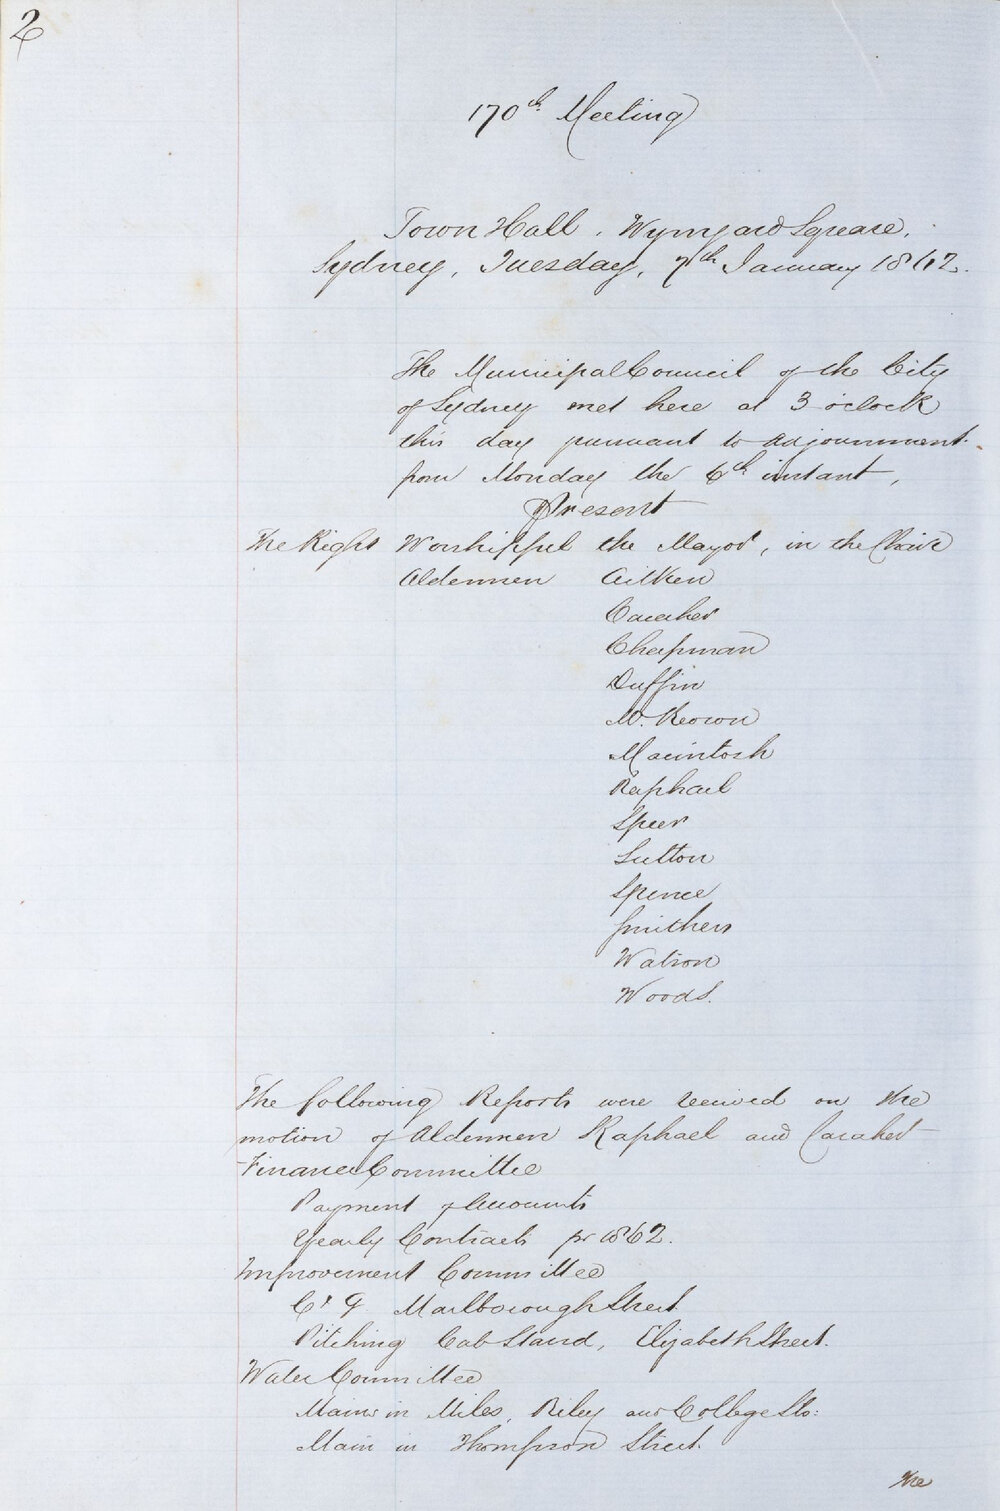 2
170th Meeting
Town Hall, Wynyard Square,
Sydney, Tuesday, 7th January 1862.
The Municipal Council of the City
of Sydney met here at 3 o'clock
this day pursuant to adjournment
from Monday the 6th instant,
Present
The Right Worshipful the Mayor, in the Chair
Aldermen Aitken
Caraher
Chapman
Duffin
Mc.Keown
Macintosh
Raphael
Speer
Sutton
Spence
Smithers
Watson
Woods.
The following Reports were received on the
motion of Aldermen Raphael and Caraher
Finance Committee
Payment of Accounts
Yearly Contracts for 1862.
Improvement Committee
C & G Marlborough Street
Pitching Cab Stand, Elizabeth Street.
Water Committee
Mains in Miles, Riley and College Sts:
Main in Thompson Street.
The